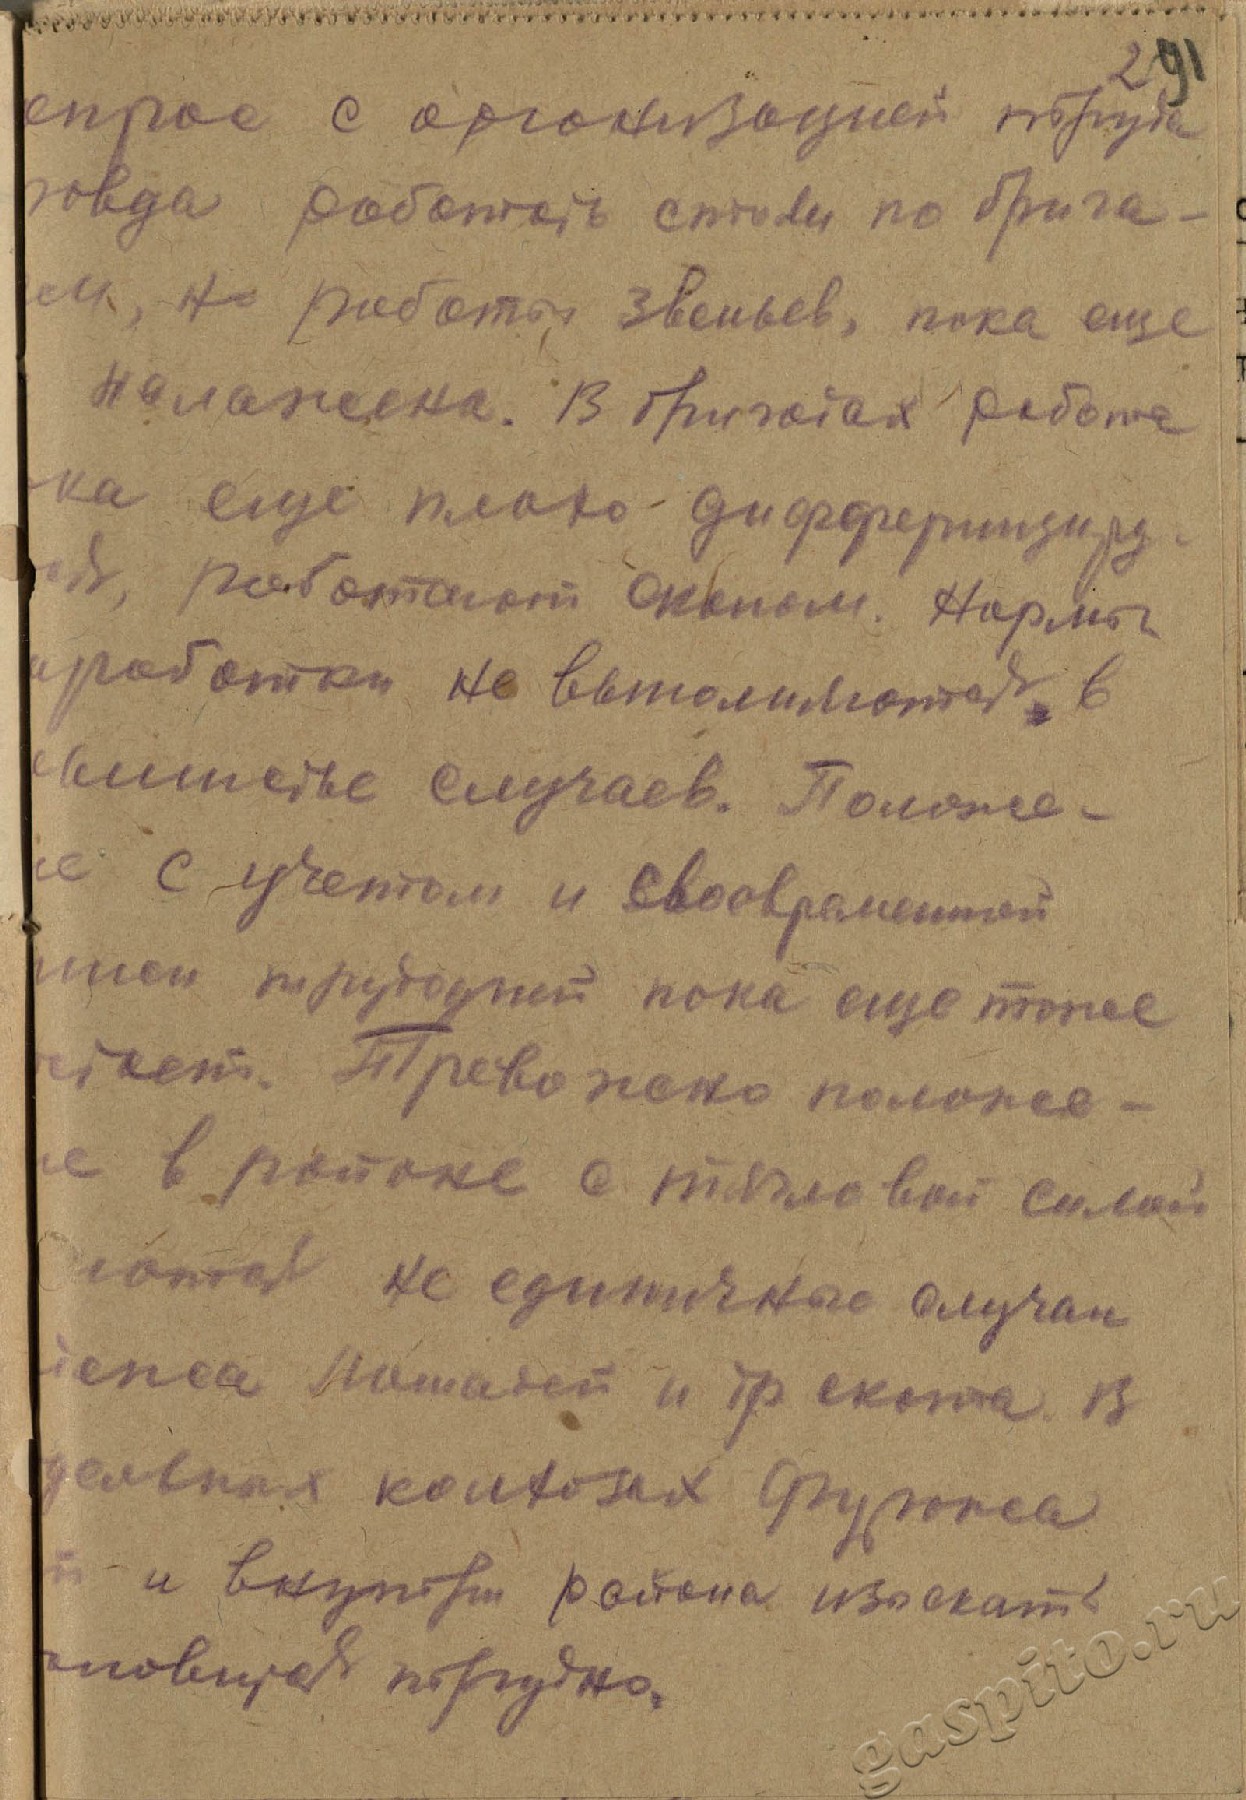 291
опрос с организацией труда
равда работать стали по брига-
ам, но работы звеньев, пока еще
налажена. В бригадах работа
ока еще плохо диффференциру-
тся, работают скопом. Нормы
ыработки не выполняются, в
ольшинстве случаев. Положе-
ие с учетом и своевременной
писи трудодней пока еще тоже
Тревожно положе-
ие в районе с тягловой силой
не единичные случаи
лошадей и кр скота. В
дельных колхозах фуража
т и внутри района изыскать
ановится трудно.
gaspito.ru